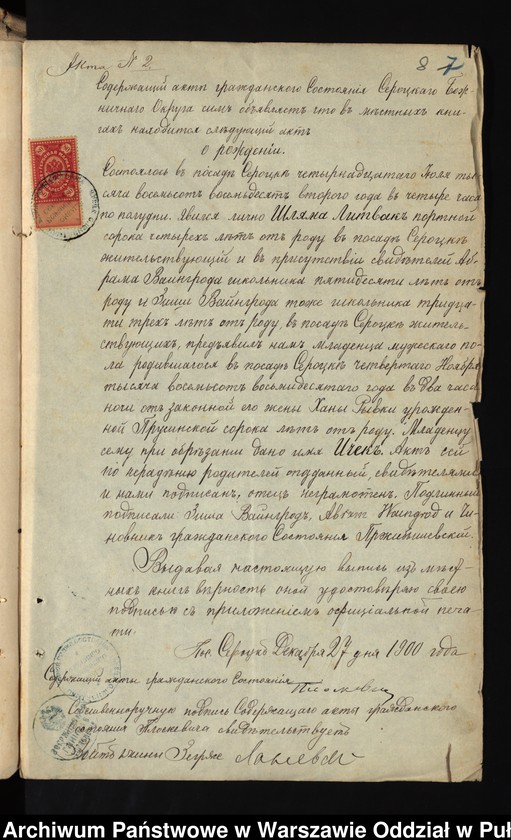 Акта № 2
8 7
Содержащій акты гражданскаго Состоянія Сероцкаго Бож-
ничнаго Округа симъ объявляетъ что въ мѣстныхъ кни-
гахъ находится слѣдующій актъ
о рожденіи.
Состоялось въ посадѣ Сероцкѣ четырнадцатаго Іюля ты-
сяча восемьсотъ восемьдесятъ второго года въ четыре часа
по полудни. Явился лично Шляма Литвакъ портной
сорока четырехъ лѣтъ отъ роду въ посадѣ Сероцкѣ
жительствующій и въ присутствіи свидѣтелей Аб-
рама Вайнгрода школьника пятидесяти лѣтъ отъ
роду и Зиши Вайнгрода тоже школьника тридца-
ти трехъ лѣтъ отъ роду, въ посадѣ Сероцкѣ житель-
ствующихъ, предъявилъ намъ младенца мужескаго по-
ла родившагося въ посадѣ Сероцкѣ четвертаго Ноября
тысяча восемьсотъ восьмидесятаго года въ два часа
ночи отъ законной его жены Ханы Рывки урожден-
ной Прусинской сорока лѣтъ отъ роду. Младенцу
сему при обрѣзаніи дано имя Ицекъ. Актъ сей
по нерадѣнію родителей опозданный, свидѣтелями
и нами подписанъ, отецъ неграмотенъ. Подлинный
подписали Зиша Вайнгродъ, и Чи-
новникъ гражданскаго Состоянія
Выдавая настоящую выпись изъ мѣст-
ныхъ книгъ вѣрность оной удостовѣряю своею
подписью съ приложеніемъ оффиціальной печа-
ти.
Пос. Сероцкъ Декабря 27 дня 1900 года
Содержащій акты гражданскаго Состоянія
Собственноручную подпись Содержащаго акты гражданскаго
состоянія свидѣтельствуетъ
Войтъ гмины Зегрже
Archiwum Państwowe w Warszawie Oddział w Puł